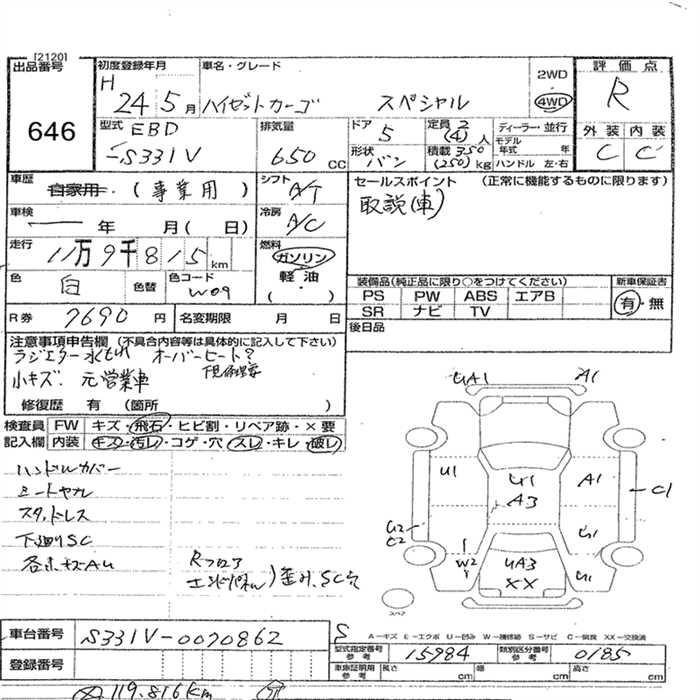 [2120]
出品番号
646
初度登録年月
H 24年 5月
車名・グレード
ハイゼットカーゴ スペシャル
2WD
4WD
評価点
R
外装 内装
C C
型式
EBD
-S331V
排気量
650 CC
ドア
5
形状
バン
定員 2
(4)人
積載 350
(250)kg
ディーラー・並行
モデル年式 年
ハンドル 左・右
車歴
自家用・(事業用)
シフト
A/T
車検
年 月(日)
冷房
A/C
走行
11万9千815km
燃料
ガソリン
軽油
( )
色
白
色替
色コード
W09
R券
7690円
名変期限 月 日
セールスポイント (正常に機能するものに限ります)
取説(車)
装備品(純正品に限り○をつけてください)
PS PW ABS エアB
SR ナビ TV
新車保証書
有・無
後日品
注意事項申告欄 (不具合内容等は具体的に記入して下さい)
ラジエター水もれ オーバーヒート?
小キズ. 元営業車
修復歴 有 (箇所 )
検査員記入欄
FW キズ・飛石・ヒビ割・リペア跡・×要
内装 キズ・汚レ・コゲ・穴・スレ・キレ・破レ
ハンドルカバー
シートヤブレ
スタッドレス
下廻りSC
Rフロア
エンドパネル)歪み.SC穴
UA1 A1
U1 U1 A1
A3
C1
U2
C2
U1
W2 UA3 U1
XX
スペア
A-キズ E-エクボ U-凹み W-補修跡 S-サビ C-腐食 XX-交換済
車台番号
S331V-0070862
S
型式指定番号参考
15984
類別区分番号参考
0185
登録番号
車庫証明用参考
長さ cm
幅 cm
高さ cm
119.816km